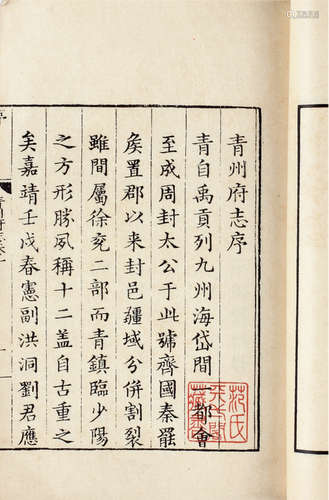 青州府志序
青自禹貢列九州海岱間一都會
至成周封太公于此號齊國秦罷
矦置郡以來封邑疆域分併割裂
雖間屬徐兖二部而青鎮臨少陽
之方形勝夙稱十二盖自古重之
矣嘉靖壬戌春憲副洪洞劉君應